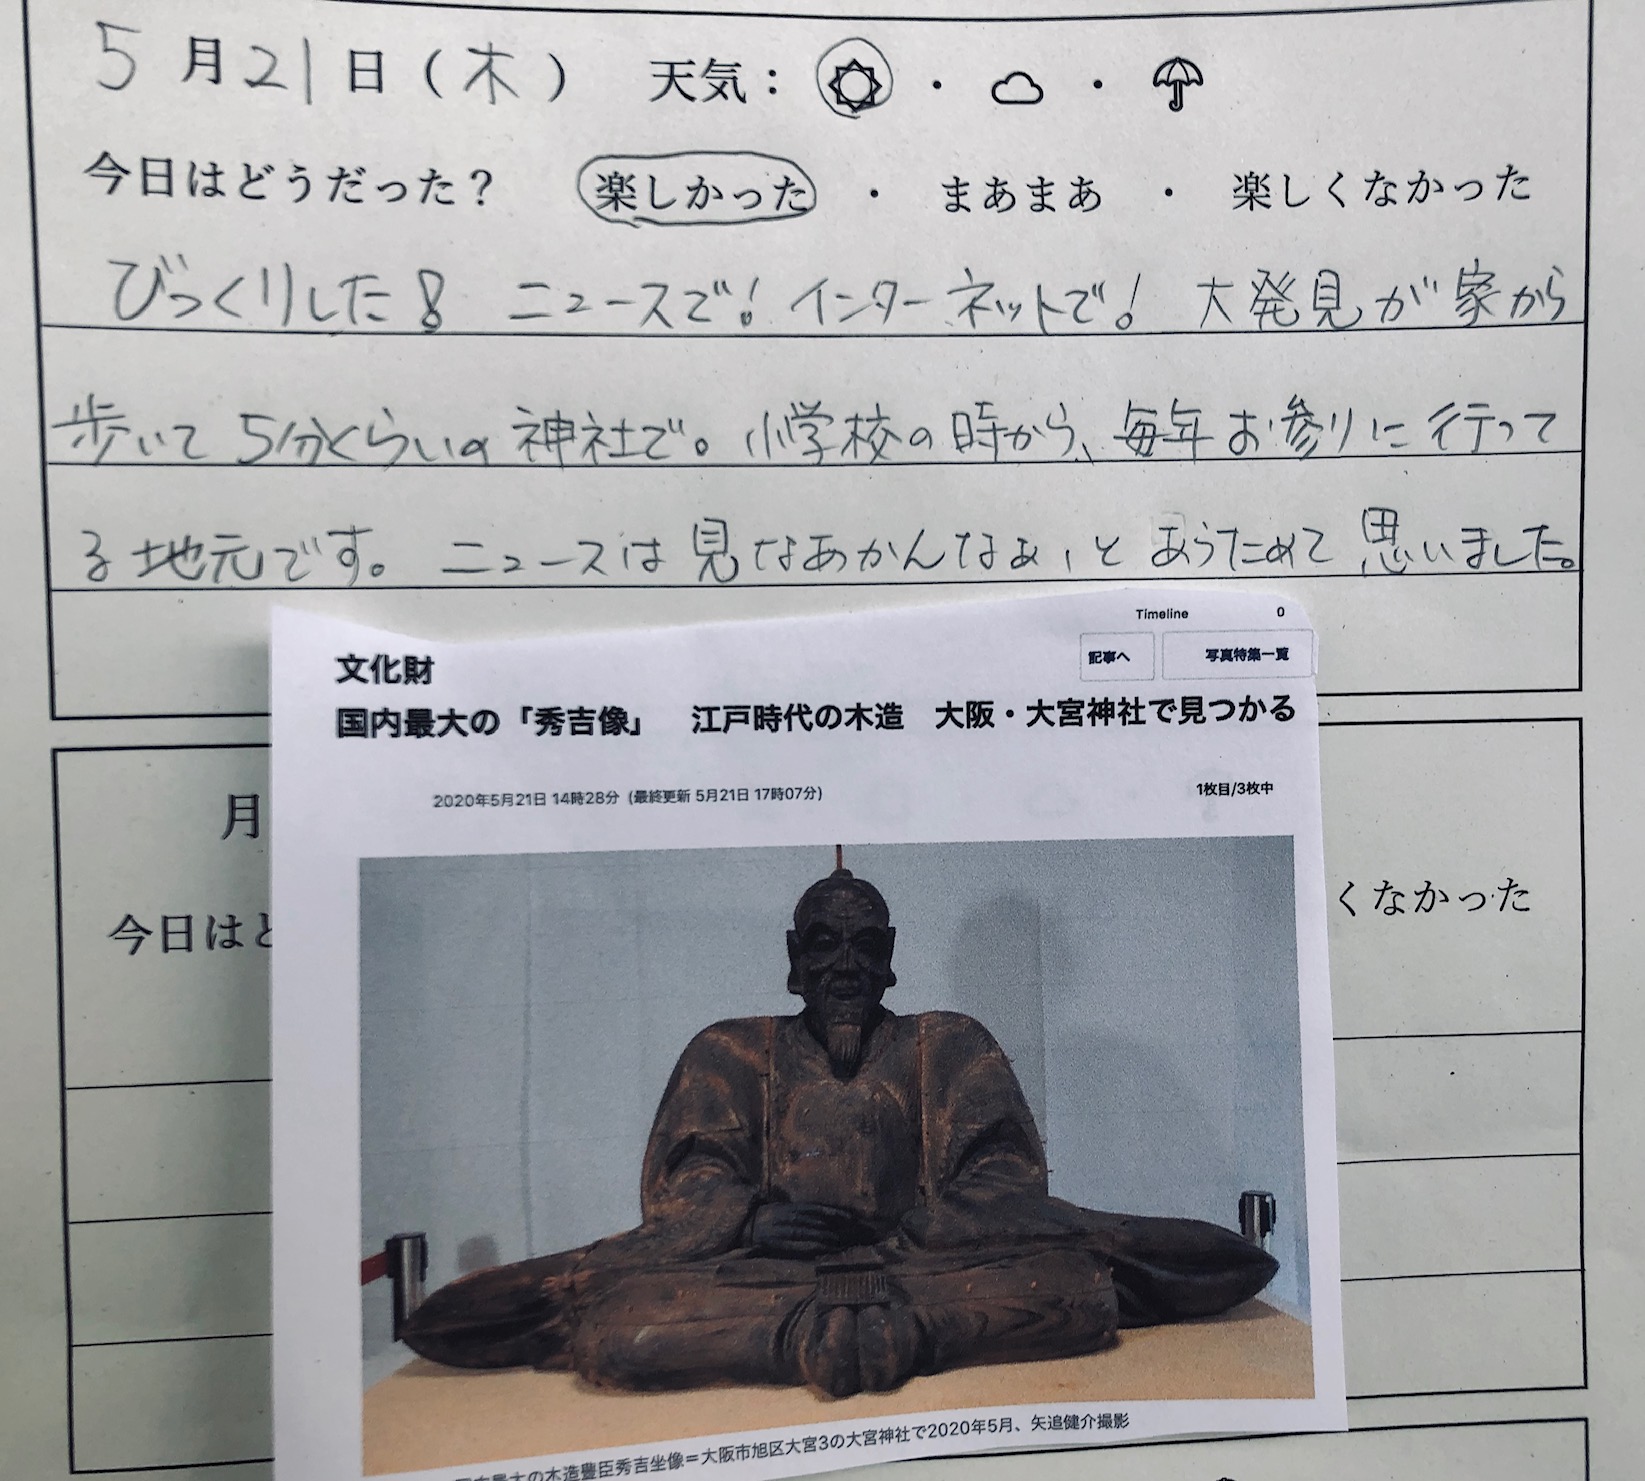 5月21日(木) 天気: ・ ・
今日はどうだった? 楽しかった ・ まあまあ ・ 楽しくなかった
びっくりした! ニュースで! インターネットで! 大発見が家から
歩いて5分くらいの神社で。小学校の時から、毎年お参りに行って
る地元です。ニュースは見なあかんなぁ、とあらためて思いました。
Timeline 0
記事へ 写真特集一覧
文化財
国内最大の「秀吉像」 江戸時代の木造 大阪・大宮神社で見つかる
2020年5月21日 14時28分 (最終更新 5月21日 17時07分)
1枚目/3枚中
月
今日はど
くなかった
国内最大の木造豊臣秀吉坐像=大阪市旭区大宮3の大宮神社で2020年5月、矢追健介撮影